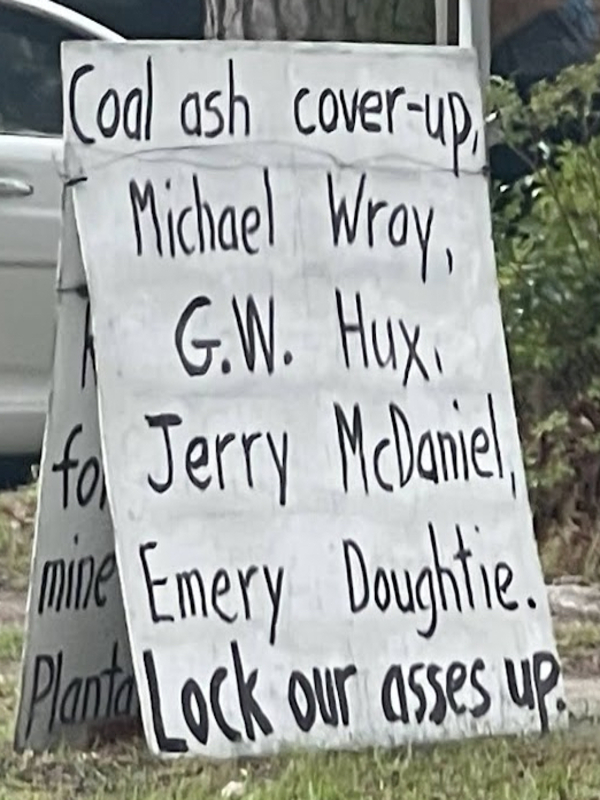 Coal ash cover-up,
Michael Wray,
G.W. Hux,
Jerry McDaniel,
Emery Doughtie.
Lock our asses up.
mine